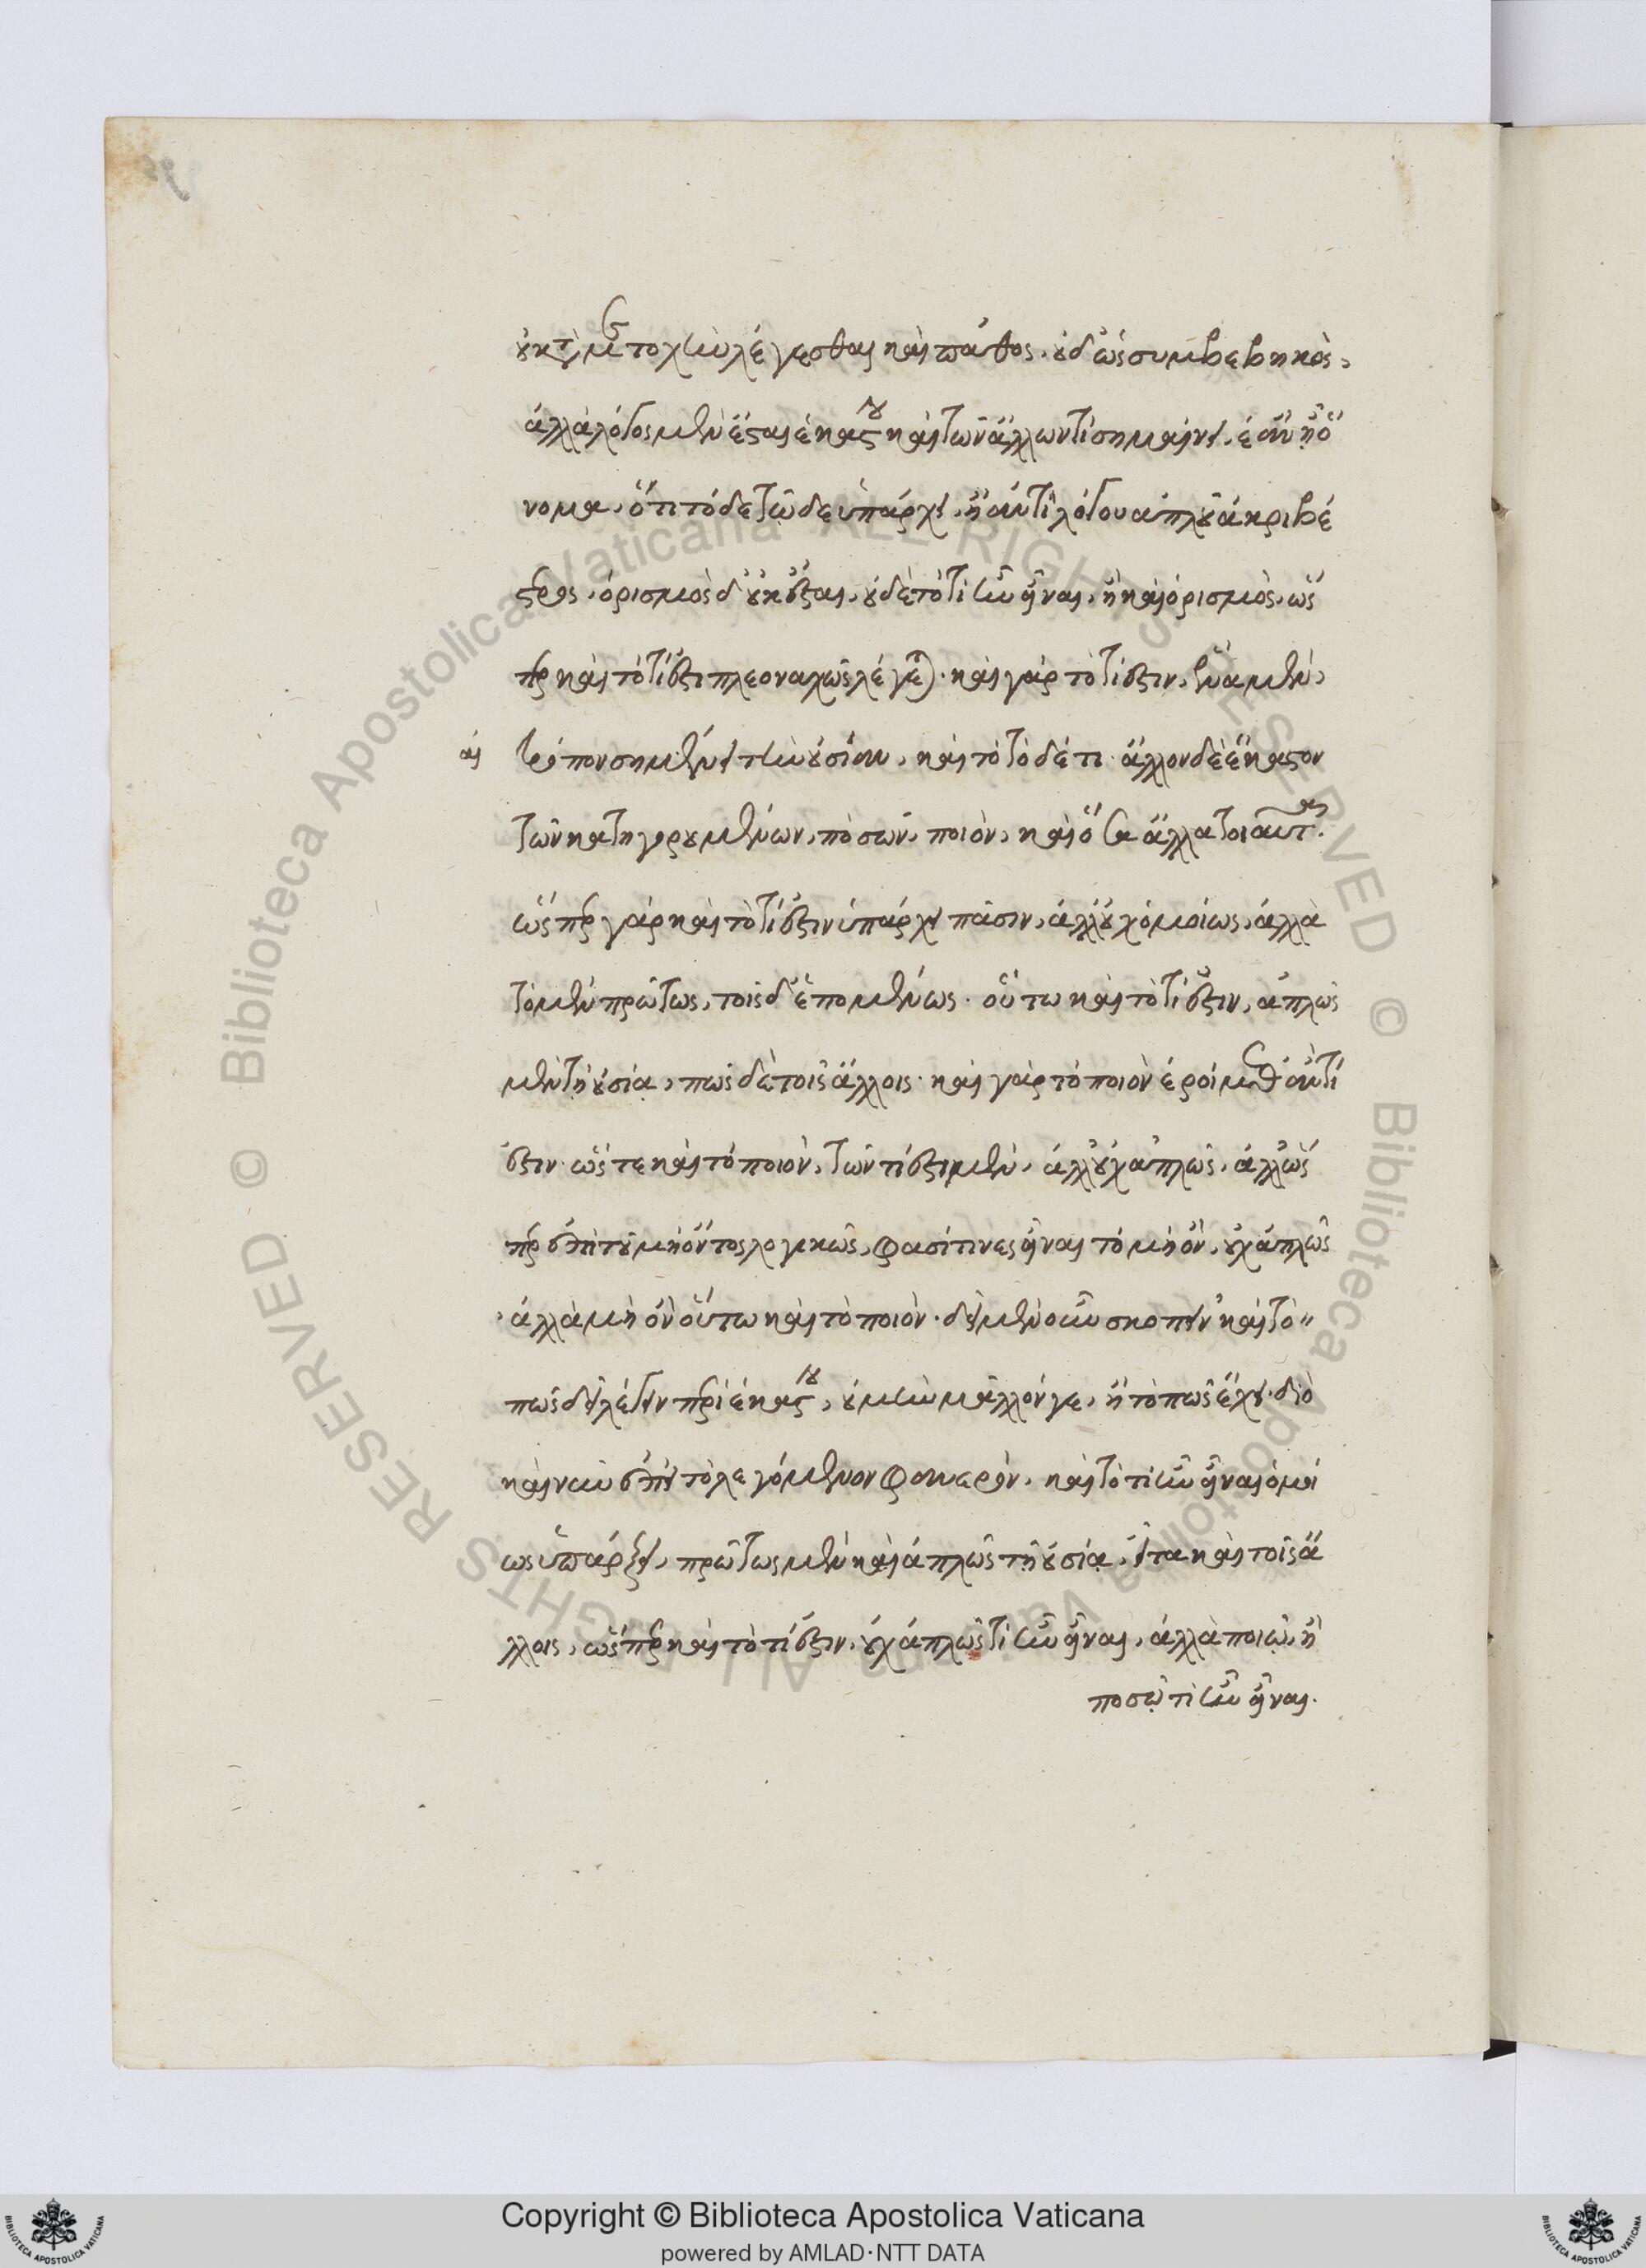 οὐ κατὰ μετοχὴν λέγεσθαι καὶ πάθος. οὐδ' ὡς συμβεβηκὸς,
ἀλλὰ λόγος μὲν ἔσται ἑκάστου καὶ τῶν ἄλλων τί σημαίνει, ἐὰν ᾖ ὄ
νομα, ὅτι τόδε τῷδε ὑπάρχει, ἢ ἀντὶ λόγου ἁπλοῦ ἀκριβέ
στερος, ὁρισμὸς δ' οὐκ ἔσται, οὐδὲ τὸ τί ἦν εἶναι, ἢ καὶ ὁρισμὸς, ὥσ
περ καὶ τὸ τί ἐστι πλεοναχῶς λέγεται. καὶ γὰρ τὸ τί ἐστιν, ἕνα μὲν,
αι τρόπον σημαίνει τὴν οὐσίαν, καὶ τὸ τόδε τι. ἄλλον δὲ ἕκαστον
τῶν κατηγορουμένων, πὸσων, ποιὸν, καὶ ὅσα ἄλλα τοιαῦτα.
ὥσπερ γὰρ καὶ τὸ τί ἐστιν ὑπάρχει πᾶσιν, ἀλλ' οὐχ ὁμοίως, ἀλλὰ
τὸ μὲν πρώτως, τοῖς δ' ἑπομένως. οὕτω καὶ τὸ τί ἐστιν, ἁπλῶς
μὲν τῇ οὐσίᾳ, πῶς δὲ τοῖς ἄλλοις. καὶ γὰρ τὸ ποιὸν ἐροίμεθ' ἂν τί
ἐστιν. ὥστε καὶ τὸ ποιὸν, τῶν τί ἐστι μὲν, ἀλλ' οὐχ ἁπλῶς, ἀλλ' ὥσ
περ ἐπὶ τοῦ μὴ ὄντος λογικῶς, φασί τινες εἶναι τὸ μὴ ὂν, οὐχ ἁπλῶς
ἀλλὰ μὴ ὂν οὕτω καὶ τὸ ποιὸν. δεῖ μὲν οὖν σκοπεῖν καὶ τὸ
πῶς δεῖ λέγειν περὶ ἕκαστου, οὐ μὴν μᾶλλόν γε, ἢ τὸ πῶς ἔχει. διὸ
καὶ νῦν ἐπεὶ τὸ λεγόμενον φανερὸν, καὶ τὸ τί ἦν εἶναι ὁμοί
ως ὑπάρξει, πρώτως μὲν καὶ ἁπλῶς τῇ οὐσίᾳ, εἶτα καὶ τοῖς ἄ
λλοις, ὥσπερ καὶ τὸ τί ἐστιν, οὐχ ἁπλῶς τί ἦν εἶναι, ἀλλὰ ποιῷ, ἢ
ποσῷ τὶ ἦν εἶναι.
Copyright © Biblioteca Apostolica Vaticana
powered by AMLAD·NTT DATA